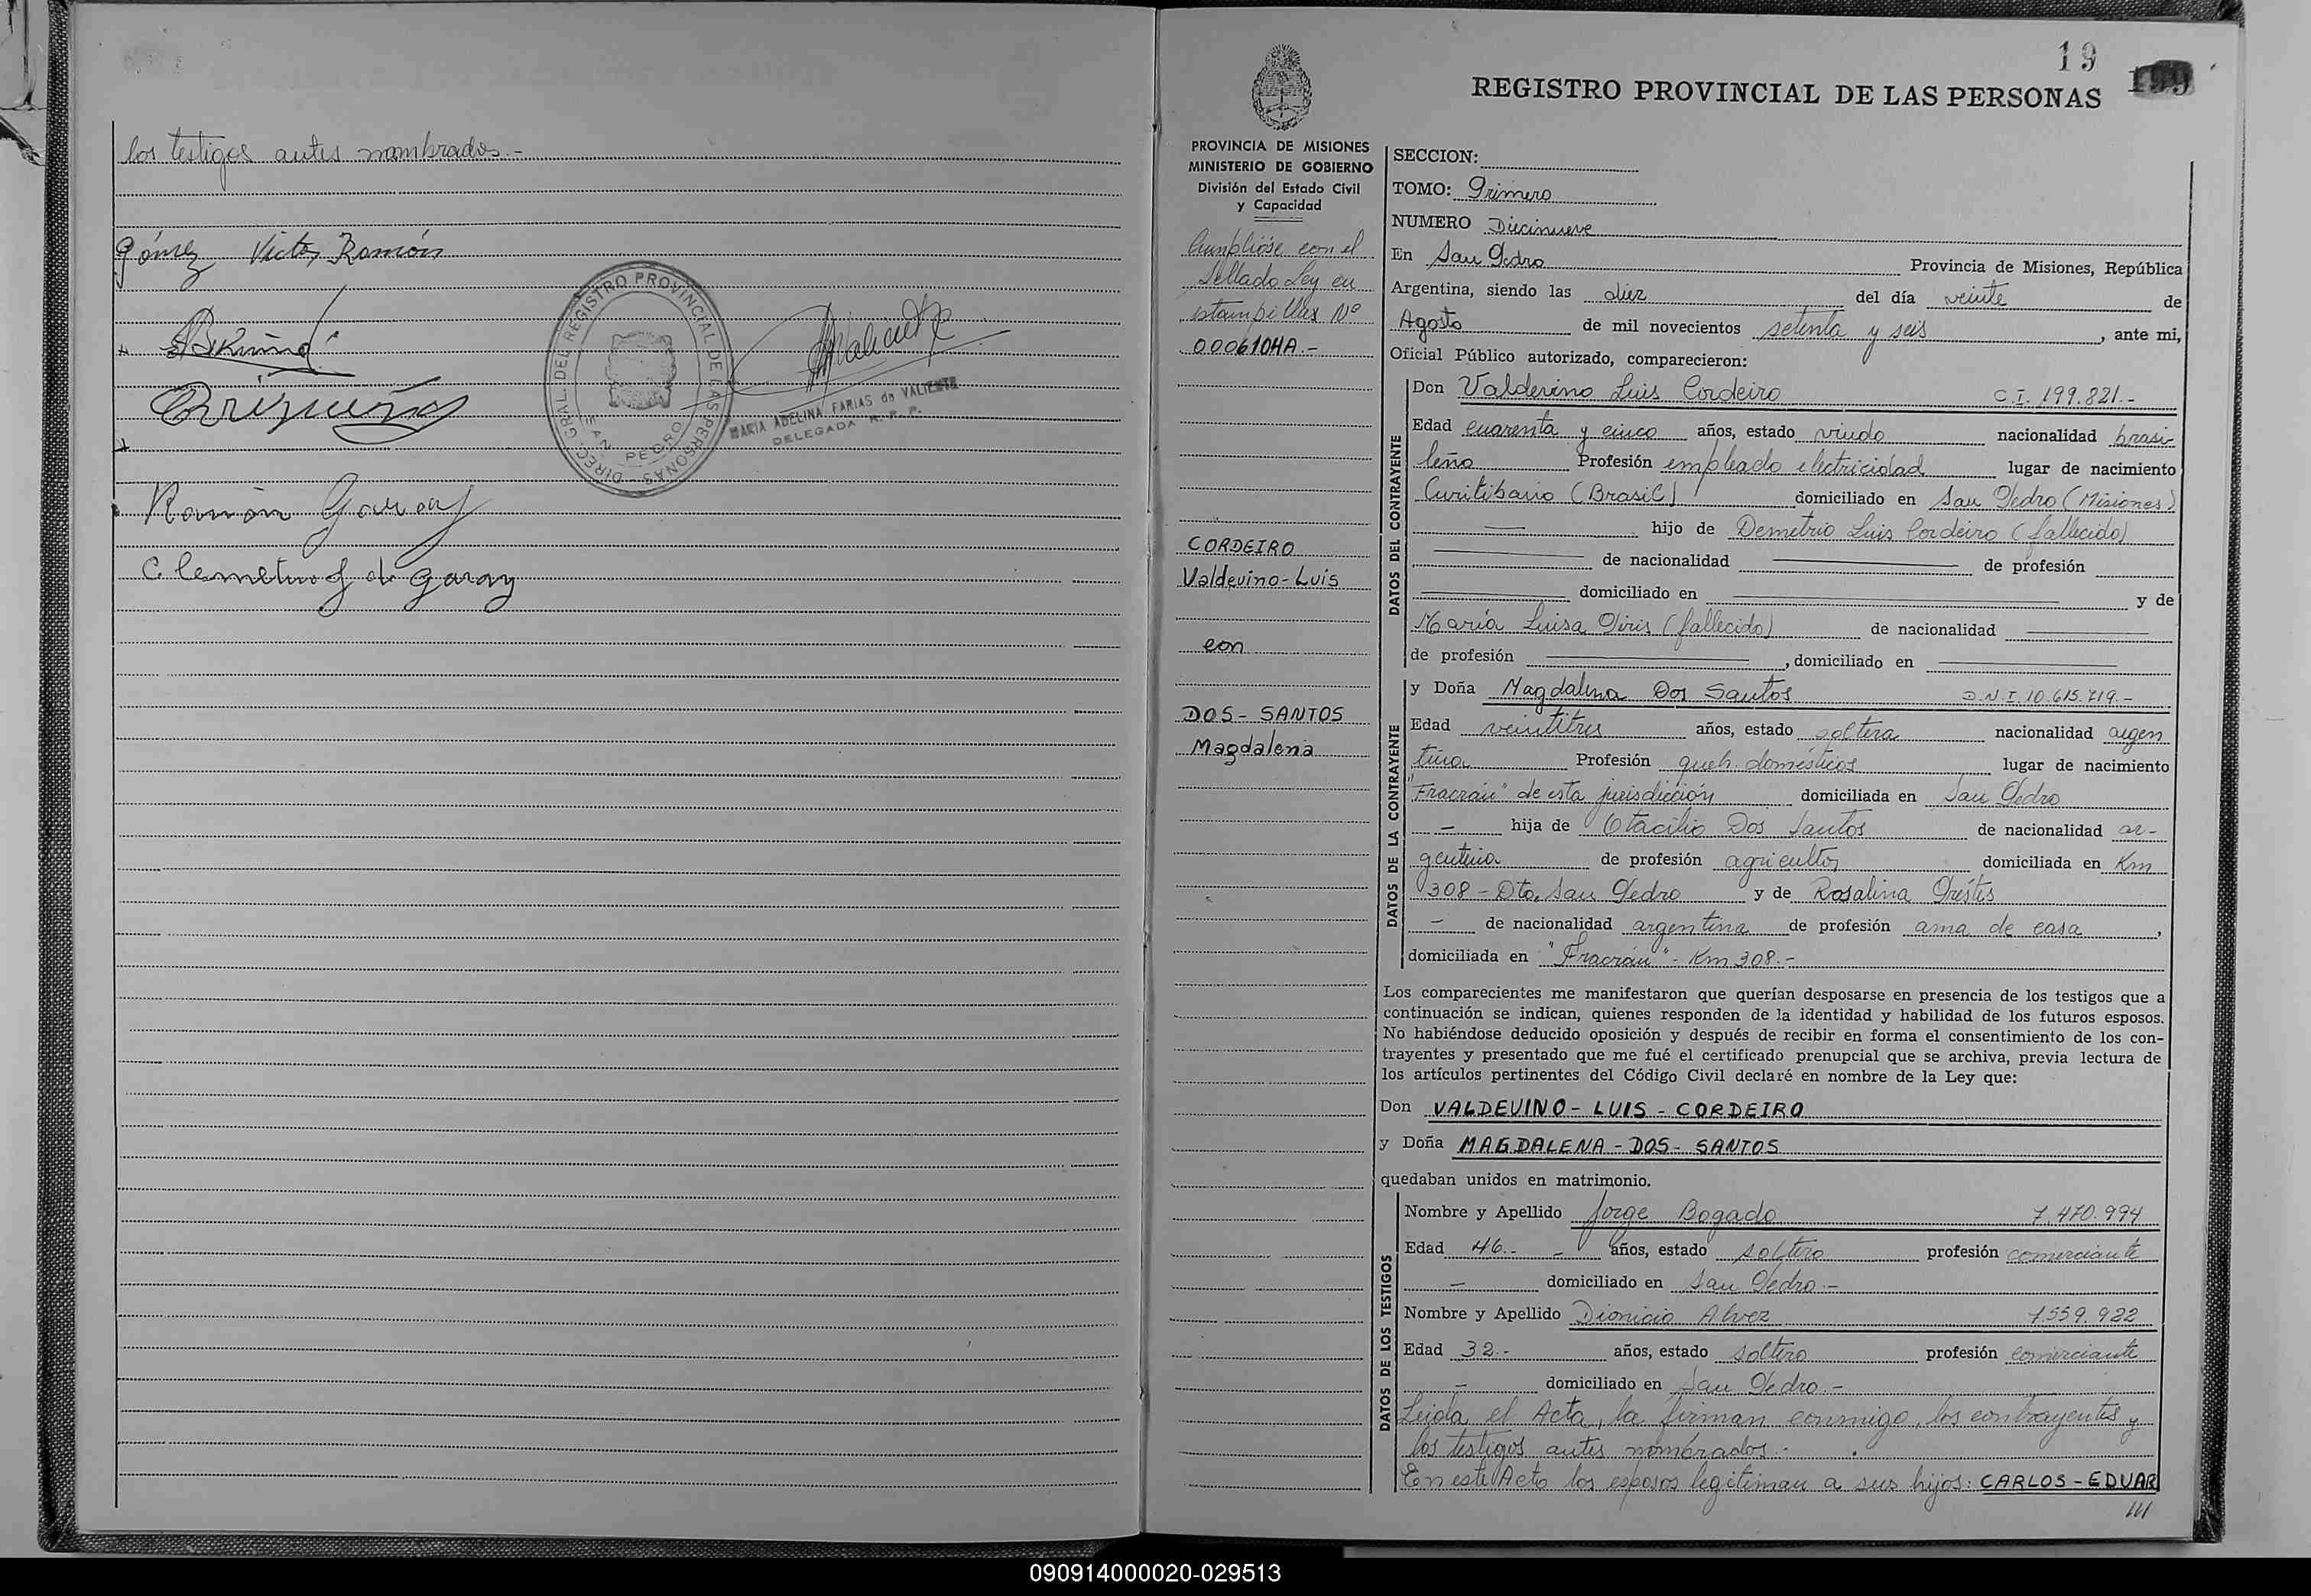 los testigos antes nombrados.-
Gómez Victor Ramón
DIREC. GRAL. DEL REGISTRO PROVINCIAL DE LAS PERSONAS
SAN PEDRO
MARIA ADELINA FARIAS de VALIENTE
DELEGADA R. P. P.
Ramón Garay
de Garay
19
199
REGISTRO PROVINCIAL DE LAS PERSONAS
PROVINCIA DE MISIONES
MINISTERIO DE GOBIERNO
División del Estado Civil
y Capacidad
Cumplióse con el
Sellado Ley en
estampillas Nº
000610HA.-
CORDEIRO
Valdevino-Luis
con
DOS-SANTOS
Magdalena
SECCION:
TOMO: Primero
NUMERO Diecinueve
En San Pedro Provincia de Misiones, República
Argentina, siendo las diez del día veinte de
Agosto de mil novecientos setenta y seis, ante mi,
Oficial Público autorizado, comparecieron:
DATOS DEL CONTRAYENTE
Don Valdevino Luis Cordeiro C.I. 199.821.-
Edad cuarenta y cinco años, estado viudo nacionalidad brasi-
leña Profesión empleado electricidad lugar de nacimiento
Curitibano (Brasil) domiciliado en San Pedro (Misiones)
hijo de Demetrio Luis Cordeiro (fallecido)
de nacionalidad de profesión
domiciliado en y de
María Luisa Piris (fallecido) de nacionalidad
de profesión , domiciliado en
DATOS DE LA CONTRAYENTE
y Doña Magdalena Dos Santos D.N.I. 10.615.719.-
Edad veintitres años, estado soltera nacionalidad argen
tina Profesión queh. domésticos lugar de nacimiento
"Fracrán" de esta jurisdicción domiciliada en San Pedro
- hija de Otacilio Dos Santos de nacionalidad ar-
gentina de profesión agricultor domiciliada en Km
308 - Dto. San Pedro y de Rosalina Prestes
- de nacionalidad argentina de profesión ama de casa,
domiciliada en "Fracrán" - Km 308.-
Los comparecientes me manifestaron que querían desposarse en presencia de los testigos que a
continuación se indican, quienes responden de la identidad y habilidad de los futuros esposos.
No habiéndose deducido oposición y después de recibir en forma el consentimiento de los con-
trayentes y presentado que me fué el certificado prenupcial que se archiva, previa lectura de
los artículos pertinentes del Código Civil declaré en nombre de la Ley que:
Don VALDEVINO - LUIS - CORDEIRO
y Doña MAGDALENA - DOS - SANTOS
quedaban unidos en matrimonio.
DATOS DE LOS TESTIGOS
Nombre y Apellido Jorge Bogado 7.470.994
Edad 46.- - años, estado soltero profesión comerciante
- domiciliado en San Pedro.-
Nombre y Apellido Dionicio Alvez 7.559.922
Edad 32.- años, estado soltero profesión comerciante
- domiciliado en San Pedro.-
Leida el Acta, la firman conmigo, los contrayentes y
los testigos antes nombrados.-
En este Acto los esposos legitiman a sus hijos: CARLOS-EDUAR
///
090914000020-029513